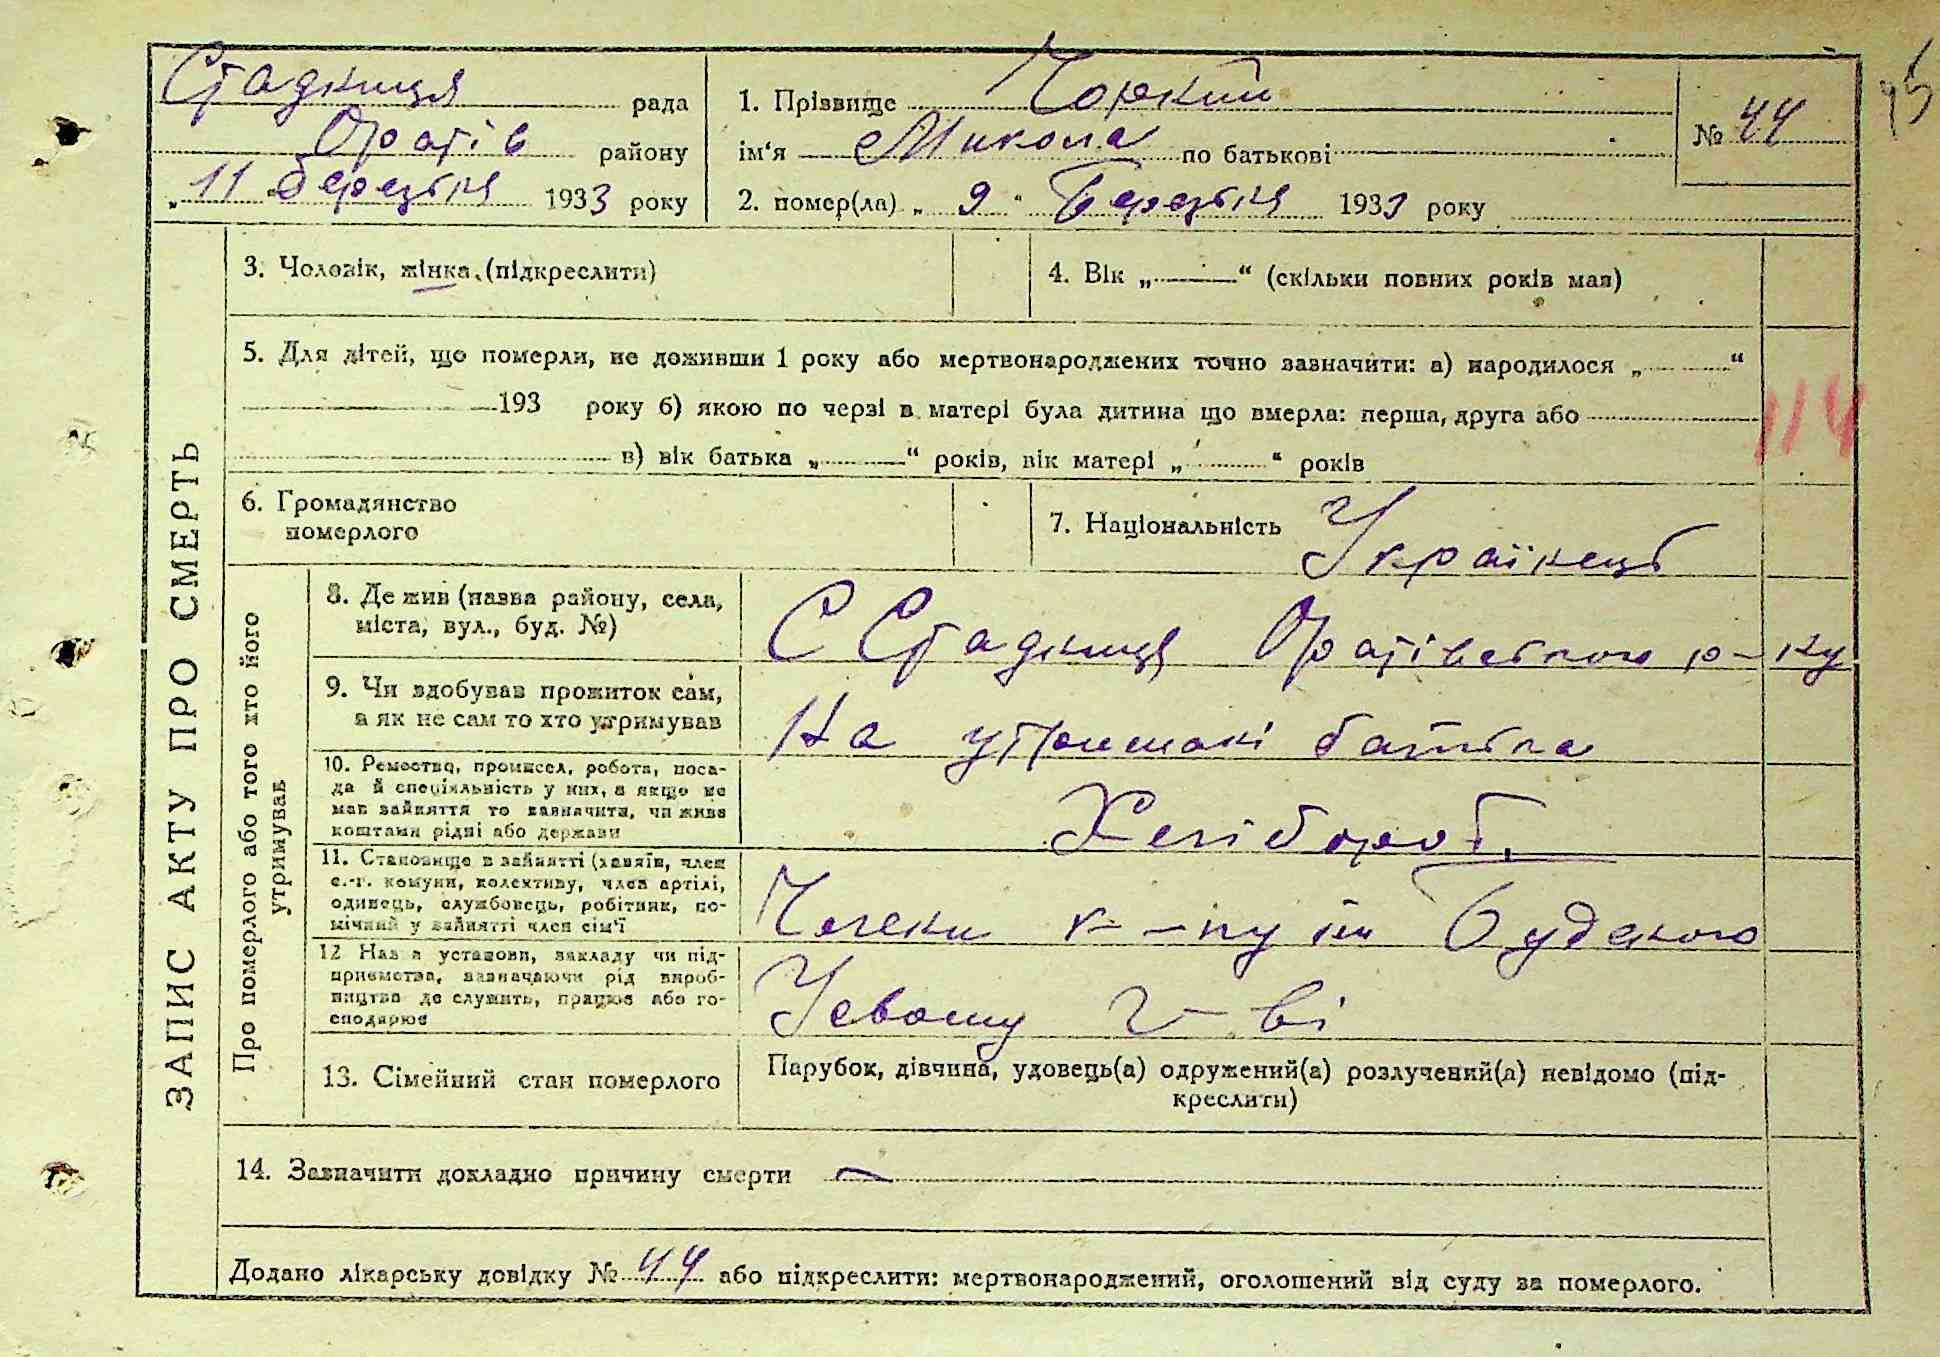 Стадниця рада
Оратів району
„ 11 березня 1933 року
1. Прізвище Чорний
ім'я Микола по батькові
2. помер(ла) „ 9 " Березня 1933 року
№ 44
45
ЗАПИС АКТУ ПРО СМЕРТЬ
3. Чоловік, жінка (підкреслити)
4. Вік „ “ (скільки повних років мав)
5. Для дітей, що померли, не доживши 1 року або мертвонароджених точно зазначити: а) народилося „ “
193 року б) якою по черзі в матері була дитина що вмерла: перша, друга або
в) вік батька „ “ років, вік матері „ “ років
114
6. Громадянство
померлого
7. Національність Українець
Про померлого або того хто його
утримував
8. Де жив (назва району, села,
міста, вул., буд. №)
С Стадниця Оратівського р-ну
9. Чи здобував прожиток сам,
а як не сам то хто утримував
На утримані батька
10. Ремество, промисел, робота, поса-
да й спеціяльність у них, а якщо не
мав зайняття то зазначити, чи жив
коштами рідні або держави
Хлібороб.
11. Становище в зайнятті (хазяїн, член
с.-г. комуни, колективу, член артілі,
одинець, службовець, робітник, по-
мічний у зайнятті член сім'ї
Члени к-пу ім
12 Назва установи, закладу чи під-
приємства, зазначаючи рід вироб-
ництва де служить, працює або го-
сподарює
У своему г-ві
13. Сімейний стан померлого
Парубок, дівчина, удовець(а) одружений(а) розлучений(а) невідомо (під-
креслити)
14. Зазначити докладно причину смерти —
Додано лікарську довідку № 44 або підкреслити: мертвонароджений, оголошений від суду за померлого.